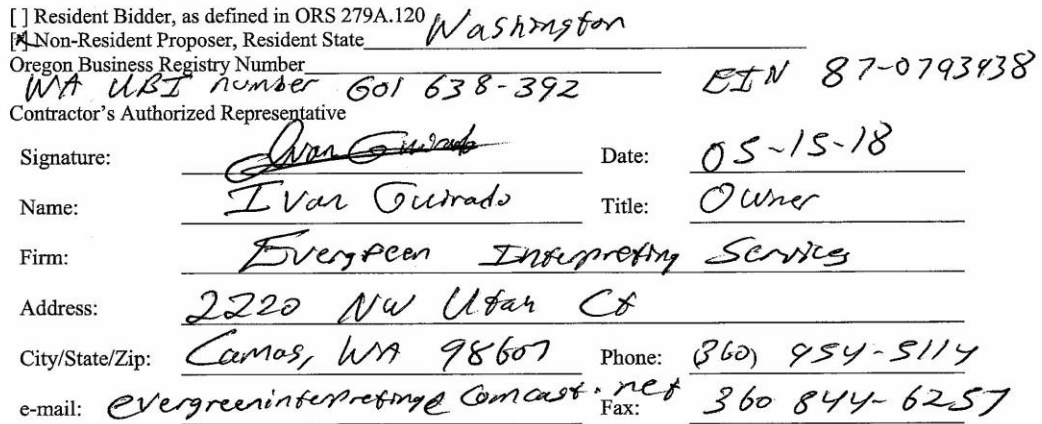 [ ] Resident Bidder, as defined in ORS 279A.120
[X] Non-Resident Proposer, Resident State Washington
Oregon Business Registry Number
WA UBI number 601 638-392 EIN 87-0793438
Contractor's Authorized Representative
Signature: Ivan Guirado Date: 05-15-18
Name: Ivan Guirado Title: Owner
Firm: Evergreen Interpreting Services
Address: 2220 NW Utah Ct
City/State/Zip: Camas, WA 98607 Phone: (360) 954-5114
e-mail: evergreeninterpreting@comcast.net Fax: 360 844-6257